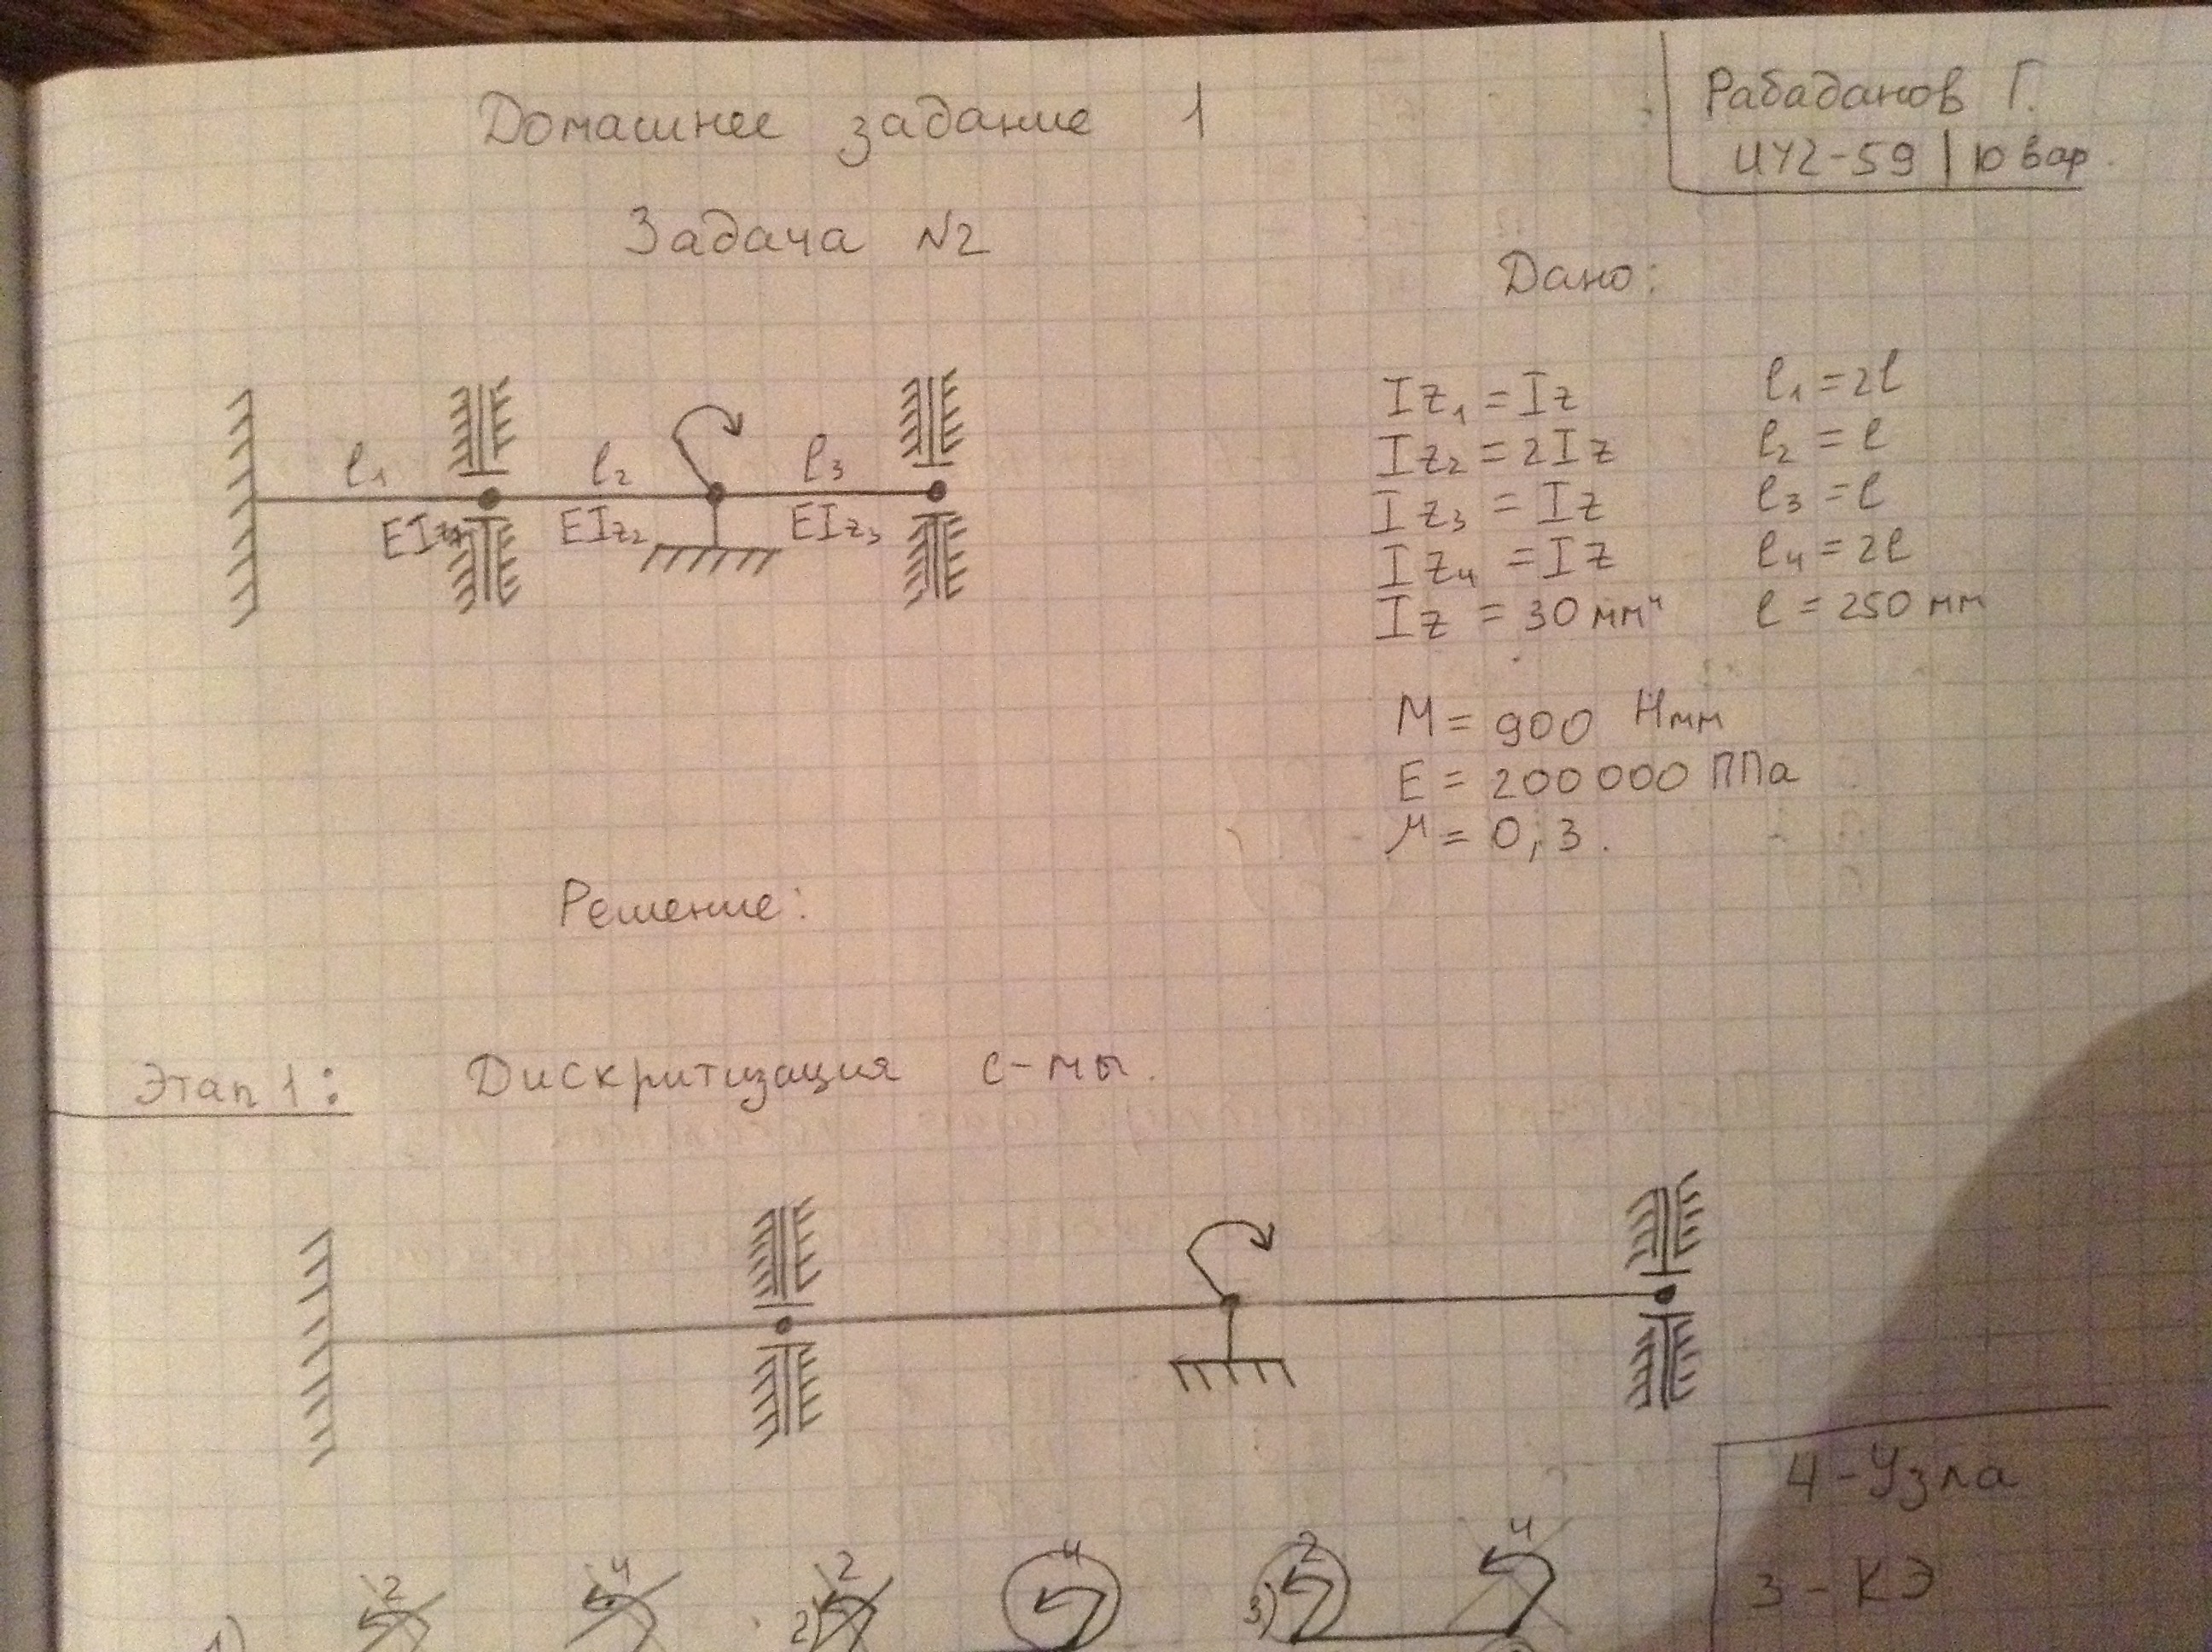 Домашнее задание 1
Рабаданов Г.
ИУ2-59 | 10 вар.
Задача N2
Дано:
l₁ l₂ l₃
EIz₁ EIz₂ EIz₃
Iz₁ = Iz l₁ = 2l
Iz₂ = 2Iz l₂ = l
Iz₃ = Iz l₃ = l
Iz₄ = Iz l₄ = 2l
Iz = 30 мм⁴ l = 250 мм
M = 900 Нмм
E = 200 000 МПа
μ = 0,3.
Решение:
Этап 1: Дискритизация с-мы.
4 - Узла
3 - КЭ
2 4 2 4 2 4
1) 2) 3)